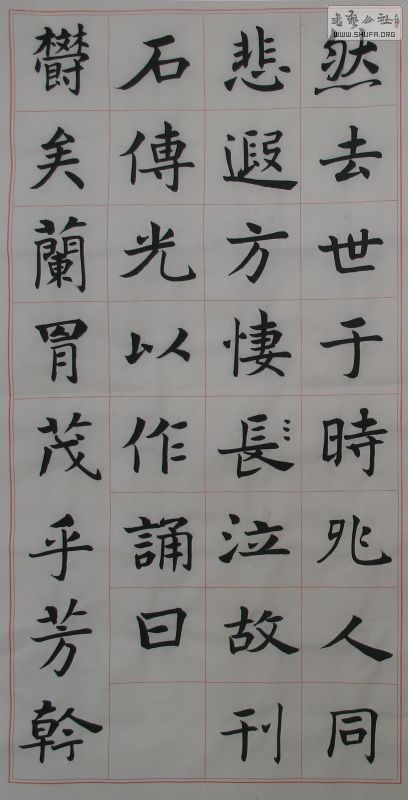 書藝公社
WWW.SHUFA.ORG
然去世于時兆人同
悲遐方悽長泣故刊
石傳光以作誦曰
欝矣蘭胄茂乎芳幹